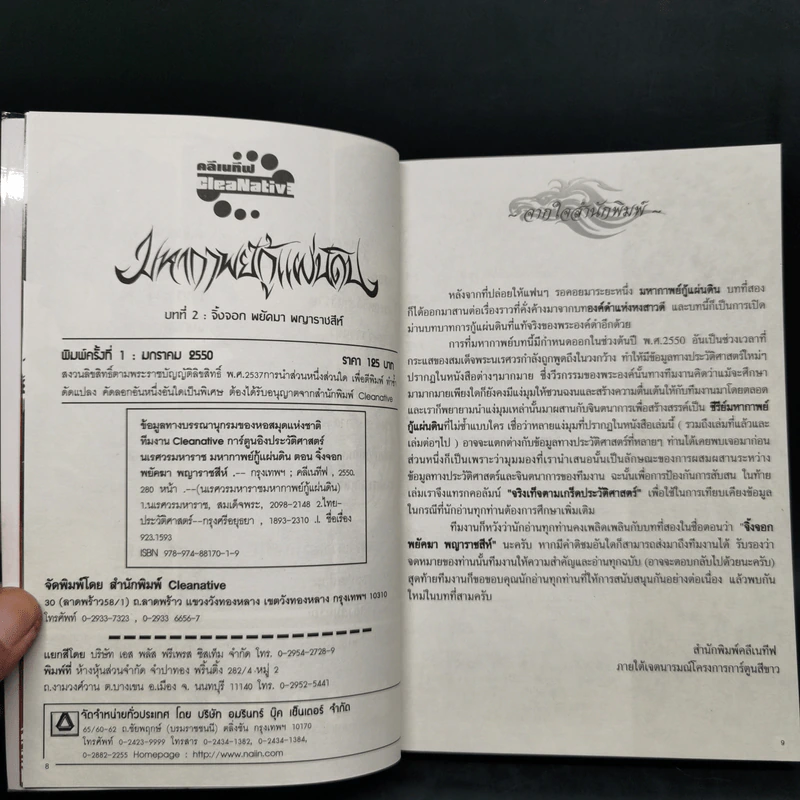 คลีเนทีฟ
CleaNative
มหากาพย์กู้แผ่นดิน
บทที่ 2 : จิ้งจอก พยัคฆา พญาราชสีห์
พิมพ์ครั้งที่ 1 : มกราคม 2550 ราคา 125 บาท
สงวนลิขสิทธิ์ตามพระราชบัญญัติลิขสิทธิ์ พ.ศ.2537การนำส่วนหนึ่งส่วนใด เพื่อตีพิมพ์ ทำซ้ำ
ดัดแปลง คัดลอกอันหนึ่งอันใดเป็นพิเศษ ต้องได้รับอนุญาตจากสำนักพิมพ์ Cleanative
ข้อมูลทางบรรณานุกรมของหอสมุดแห่งชาติ
ทีมงาน Cleanative การ์ตูนอิงประวัติศาสตร์
นเรศวรมหาราช มหากาพย์กู้แผ่นดิน ตอน จิ้งจอก
พยัคฆา พญาราชสีห์ .-- กรุงเทพฯ ; คลีเนทีฟ , 2550.
280 หน้า .--(นเรศวรมหาราชมหากาพย์กู้แผ่นดิน)
1.นเรศวรมหาราช, สมเด็จพระ, 2098-2148 2.ไทย-
ประวัติศาสตร์-กรุงศรีอยุธยา , 1893-2310 .I. ชื่อเรื่อง
923.1593
ISBN 978-974-88170-1-9
จัดพิมพ์โดย สำนักพิมพ์ Cleanative
30 (ลาดพร้าว58/1) ถ.ลาดพร้าว แขวงวังทองหลาง เขตวังทองหลาง กรุงเทพฯ 10310
โทรศัพท์ 0-2933-7323 , 0-2933 6656-7
แยกสีโดย บริษัท เอส พลัส พรีเพรส ซิสเท็ม จำกัด โทร. 0-2954-2728-9
พิมพ์ที่ ห้างหุ้นส่วนจำกัด จำปาทอง พริ้นติ้ง 282/4 หมู่ 2
ถ.งามวงศ์วาน ต.บางเขน อ.เมือง จ. นนทบุรี 11140 โทร. 0-2952-5441
จัดจำหน่ายทั่วประเทศ โดย บริษัท อมรินทร์ บุ๊ค เซ็นเตอร์ จำกัด
65/60-62 ถ.ชัยพฤกษ์ (บรมราชชนนี) ตลิ่งชัน กรุงเทพฯ 10170
โทรศัพท์ 0-2423-9999 โทรสาร 0-2434-1382, 0-2434-1384,
0-2882-2255 Homepage : http://www.naiin.com
8
จากใจสำนักพิมพ์
หลังจากที่ปล่อยให้แฟนๆ รอคอยมาระยะหนึ่ง มหากาพย์กู้แผ่นดิน บทที่สอง
ก็ได้ออกมาสานต่อเรื่องราวที่คั่งค้างมาจากบทองค์ดำแห่งหงสาวดี และบทนี้ก็เป็นการเปิด
ม่านบทบาทการกู้แผ่นดินที่แท้จริงของพระองค์ดำอีกด้วย
การที่มหากาพย์บทนี้มีกำหนดออกในช่วงต้นปี พ.ศ.2550 อันเป็นช่วงเวลาที่
กระแสของสมเด็จพระนเรศวรกำลังถูกพูดถึงในวงกว้าง ทำให้มีข้อมูลทางประวัติศาสตร์ใหม่ๆ
ปรากฏในหนังสือต่างๆมากมาย ซึ่งวีรกรรมของพระองค์นั้นทางทีมงานคิดว่าแม้จะศึกษา
มามากมายเพียงใดก็ยังคงมีแง่มุมให้ชวนฉงนและสร้างความตื่นเต้นให้กับทีมงานมาโดยตลอด
และเราก็พยายามนำแง่มุมเหล่านั้นมาผสานกับจินตนาการเพื่อสร้างสรรค์เป็น ซีรีย์มหากาพย์
กู้แผ่นดินที่ไม่ซ้ำแบบใคร เชื่อว่าหลายแง่มุมที่ปรากฏในหนังสือเล่มนี้ ( รวมถึงเล่มที่แล้วและ
เล่มต่อๆไป ) อาจจะแตกต่างกับข้อมูลทางประวัติศาสตร์ที่หลายๆ ท่านได้เคยพบเจอมาก่อน
ส่วนหนึ่งก็เป็นเพราะว่ามุมมองที่เรานำเสนอนั้นเป็นลักษณะของการผสมผสานระหว่าง
ข้อมูลทางประวัติศาสตร์และจินตนาการของทีมงาน ฉะนั้นเพื่อการป้องกันการสับสน ในท้าย
เล่มเราจึงแทรกคอลัมน์ "จริงเท็จตามเกร็ดประวัติศาสตร์" เพื่อใช้ในการเทียบเคียงข้อมูล
ในกรณีที่นักอ่านทุกท่านต้องการศึกษาเพิ่มเติม
ทีมงานก็หวังว่านักอ่านทุกท่านคงเพลิดเพลินกับบทที่สองในชื่อตอนว่า "จิ้งจอก
พยัคฆา พญาราชสีห์" นะครับ หากมีคำติชมอันใดก็สามารถส่งมาถึงทีมงานได้ รับรองว่า
จดหมายของท่านนั้นทีมงานให้ความสำคัญและอ่านทุกฉบับ (อาจจะตอบกลับไปด้วยนะครับ)
สุดท้ายทีมงานก็ขอขอบคุณนักอ่านทุกท่านที่ให้การสนับสนุนกันอย่างต่อเนื่อง แล้วพบกัน
ใหม่ในบทที่สามครับ
สำนักพิมพ์คลีเนทีฟ
ภายใต้เจตนารมณ์โครงการการ์ตูนสีขาว
9